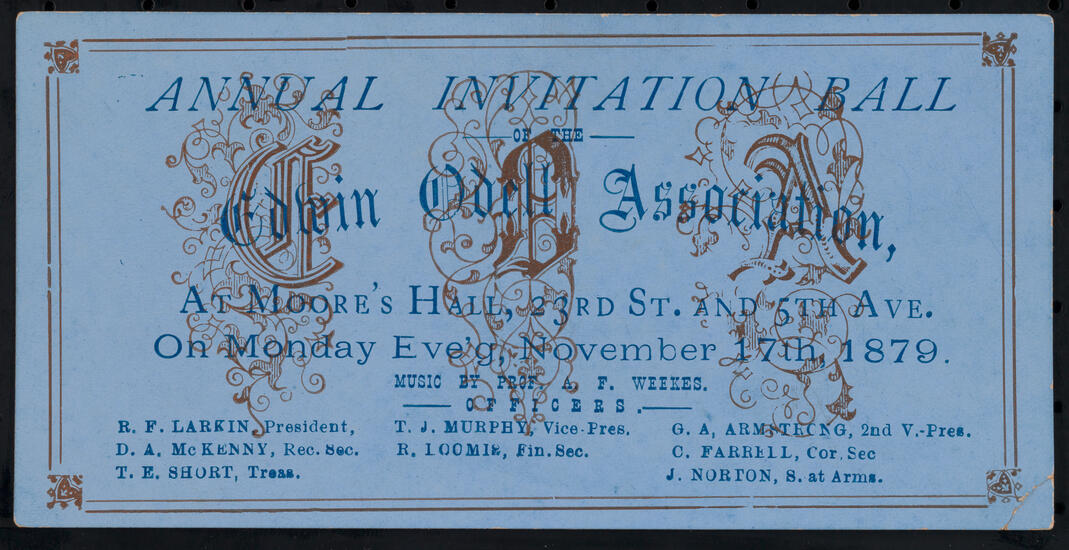 ANNUAL INVITATION BALL
OF THE
Edwin Odell Association,
AT MOORE'S HALL, 23RD ST. AND 5TH AVE.
On Monday Eve'g, November 17th, 1879.
MUSIC BY PROF. A. F. WEEKES.
OFFICERS.
R. F. LARKIN, President, T. J. MURPHY, Vice-Pres. G. A, ARMSTRONG, 2nd V.-Pres.
D. A. McKENNY, Rec. Sec. R. LOOMIS, Fin. Sec. C. FARRELL, Cor. Sec
T. E. SHORT, Treas. J. NORTON, S. at Arms.